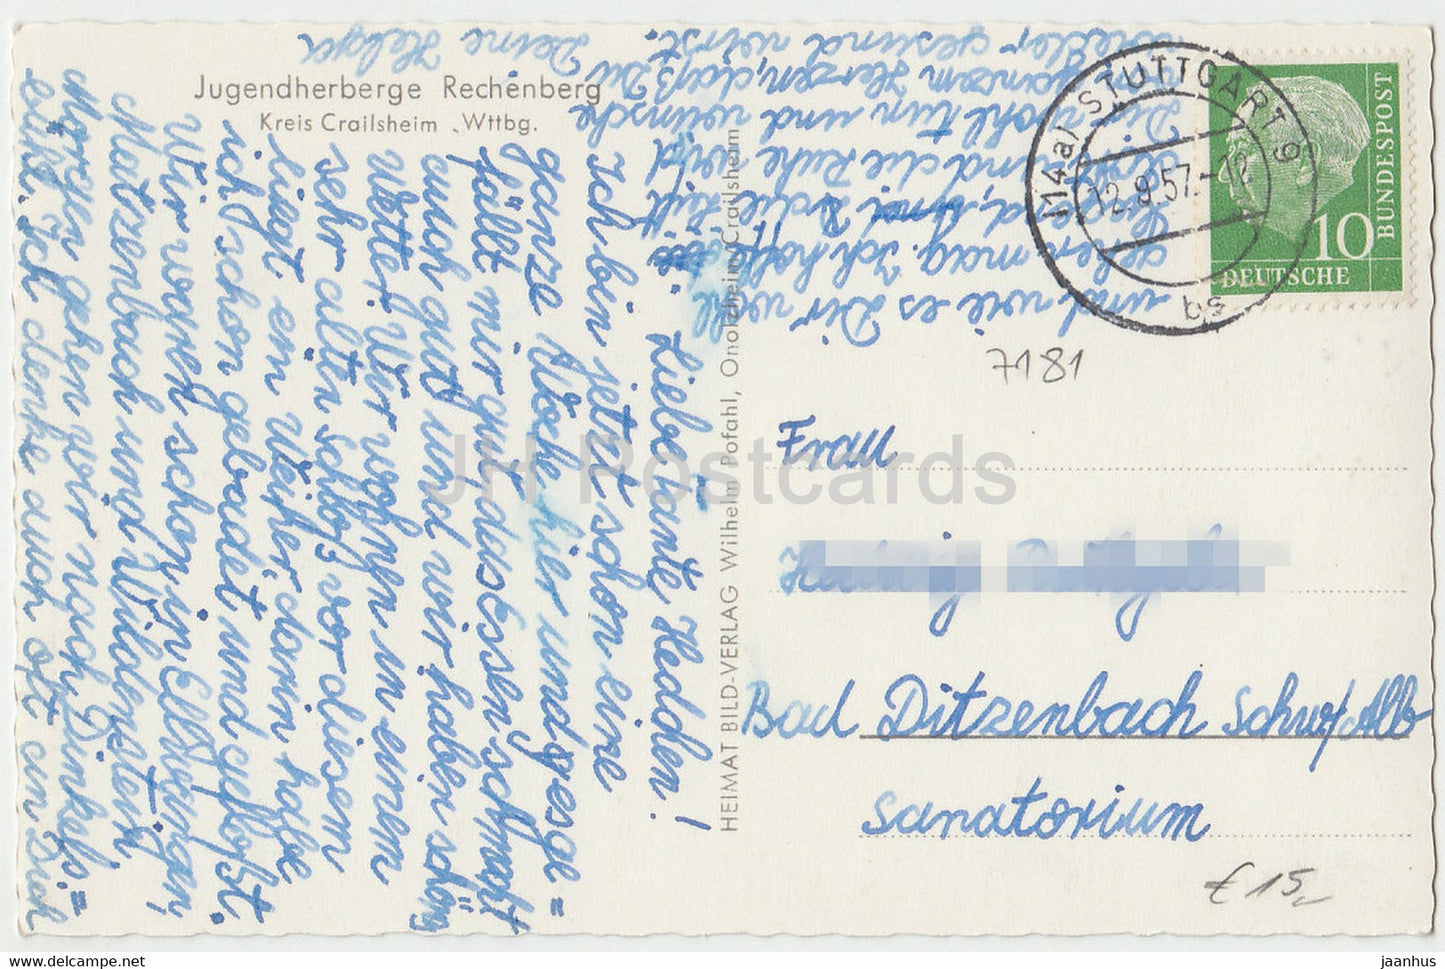 Jugendherberge Rechenberg
Kreis Crailsheim , Wttbg.
Liebe Tante Hedden!
Ich bin jetzt schon eine
ganze Woche hier und es ge=
fällt mir gut das Essen schmeckt
auch gut und wir haben schön
Wetter. Wir wohnen in einem
sehr alten Schloß vor diesem
liegt ein Weiher, darin habe
ich schon gebadet und gefloßt.
Wir waren schon in Ellwangen,
Matzenbach und Wildenstein
Morgen gehen wir nach Dinkels=
bühl. Ich denke auch oft an Dich
und, wie es Dir wohl
gehen mag. Ich hoffe
die Luft
und die Ruhe wird
Dir wohl tun und wünsche
ganzem Herzen, daß Du
wieder gesund wirst.
Deine Helga
HEIMAT BILD-VERLAG Wilhelm Pofahl, Onolzheim/Crailsheim
(14a) STUTTGART 9
12.9.57.-12
bs
BUNDESPOST
10
DEUTSCHE
7181
Frau
Bad Ditzenbach Schw/Alb
Sanatorium
€ 15,-
JH Postcards
jaanhus
www.delcampe.net